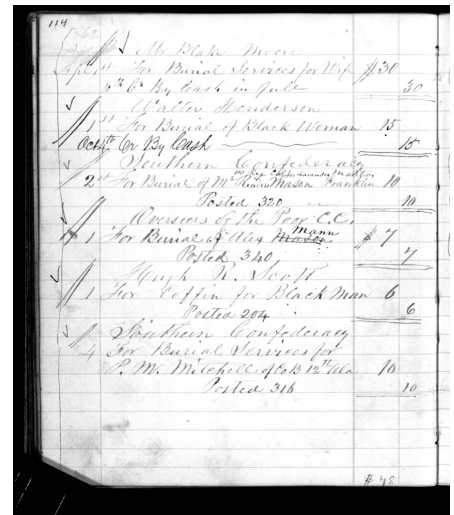 114
1862
Mr Blake Moore
Apr 1st For Burial Services for Wife $30
4th Cr By Cash in full 30
Walter Henderson
1st For Burial of Black Woman 15
Oct 4th Cr By Cash 15
Southern Confederacy
2st For Burial of Mr Mason Franklin 10
Posted 320 10
Overseers of the Poor C.C.
1 For Burial of Alex Mason Mann $ 7
Posted 340 7
Hugh R. Scott
1 For Coffin for Black Man 6
Posted 204 6
Southern Confederacy
4 For Burial Services for
P. M. Mitchell of Co B 12th Ala 10
Posted 316 10
$ 78